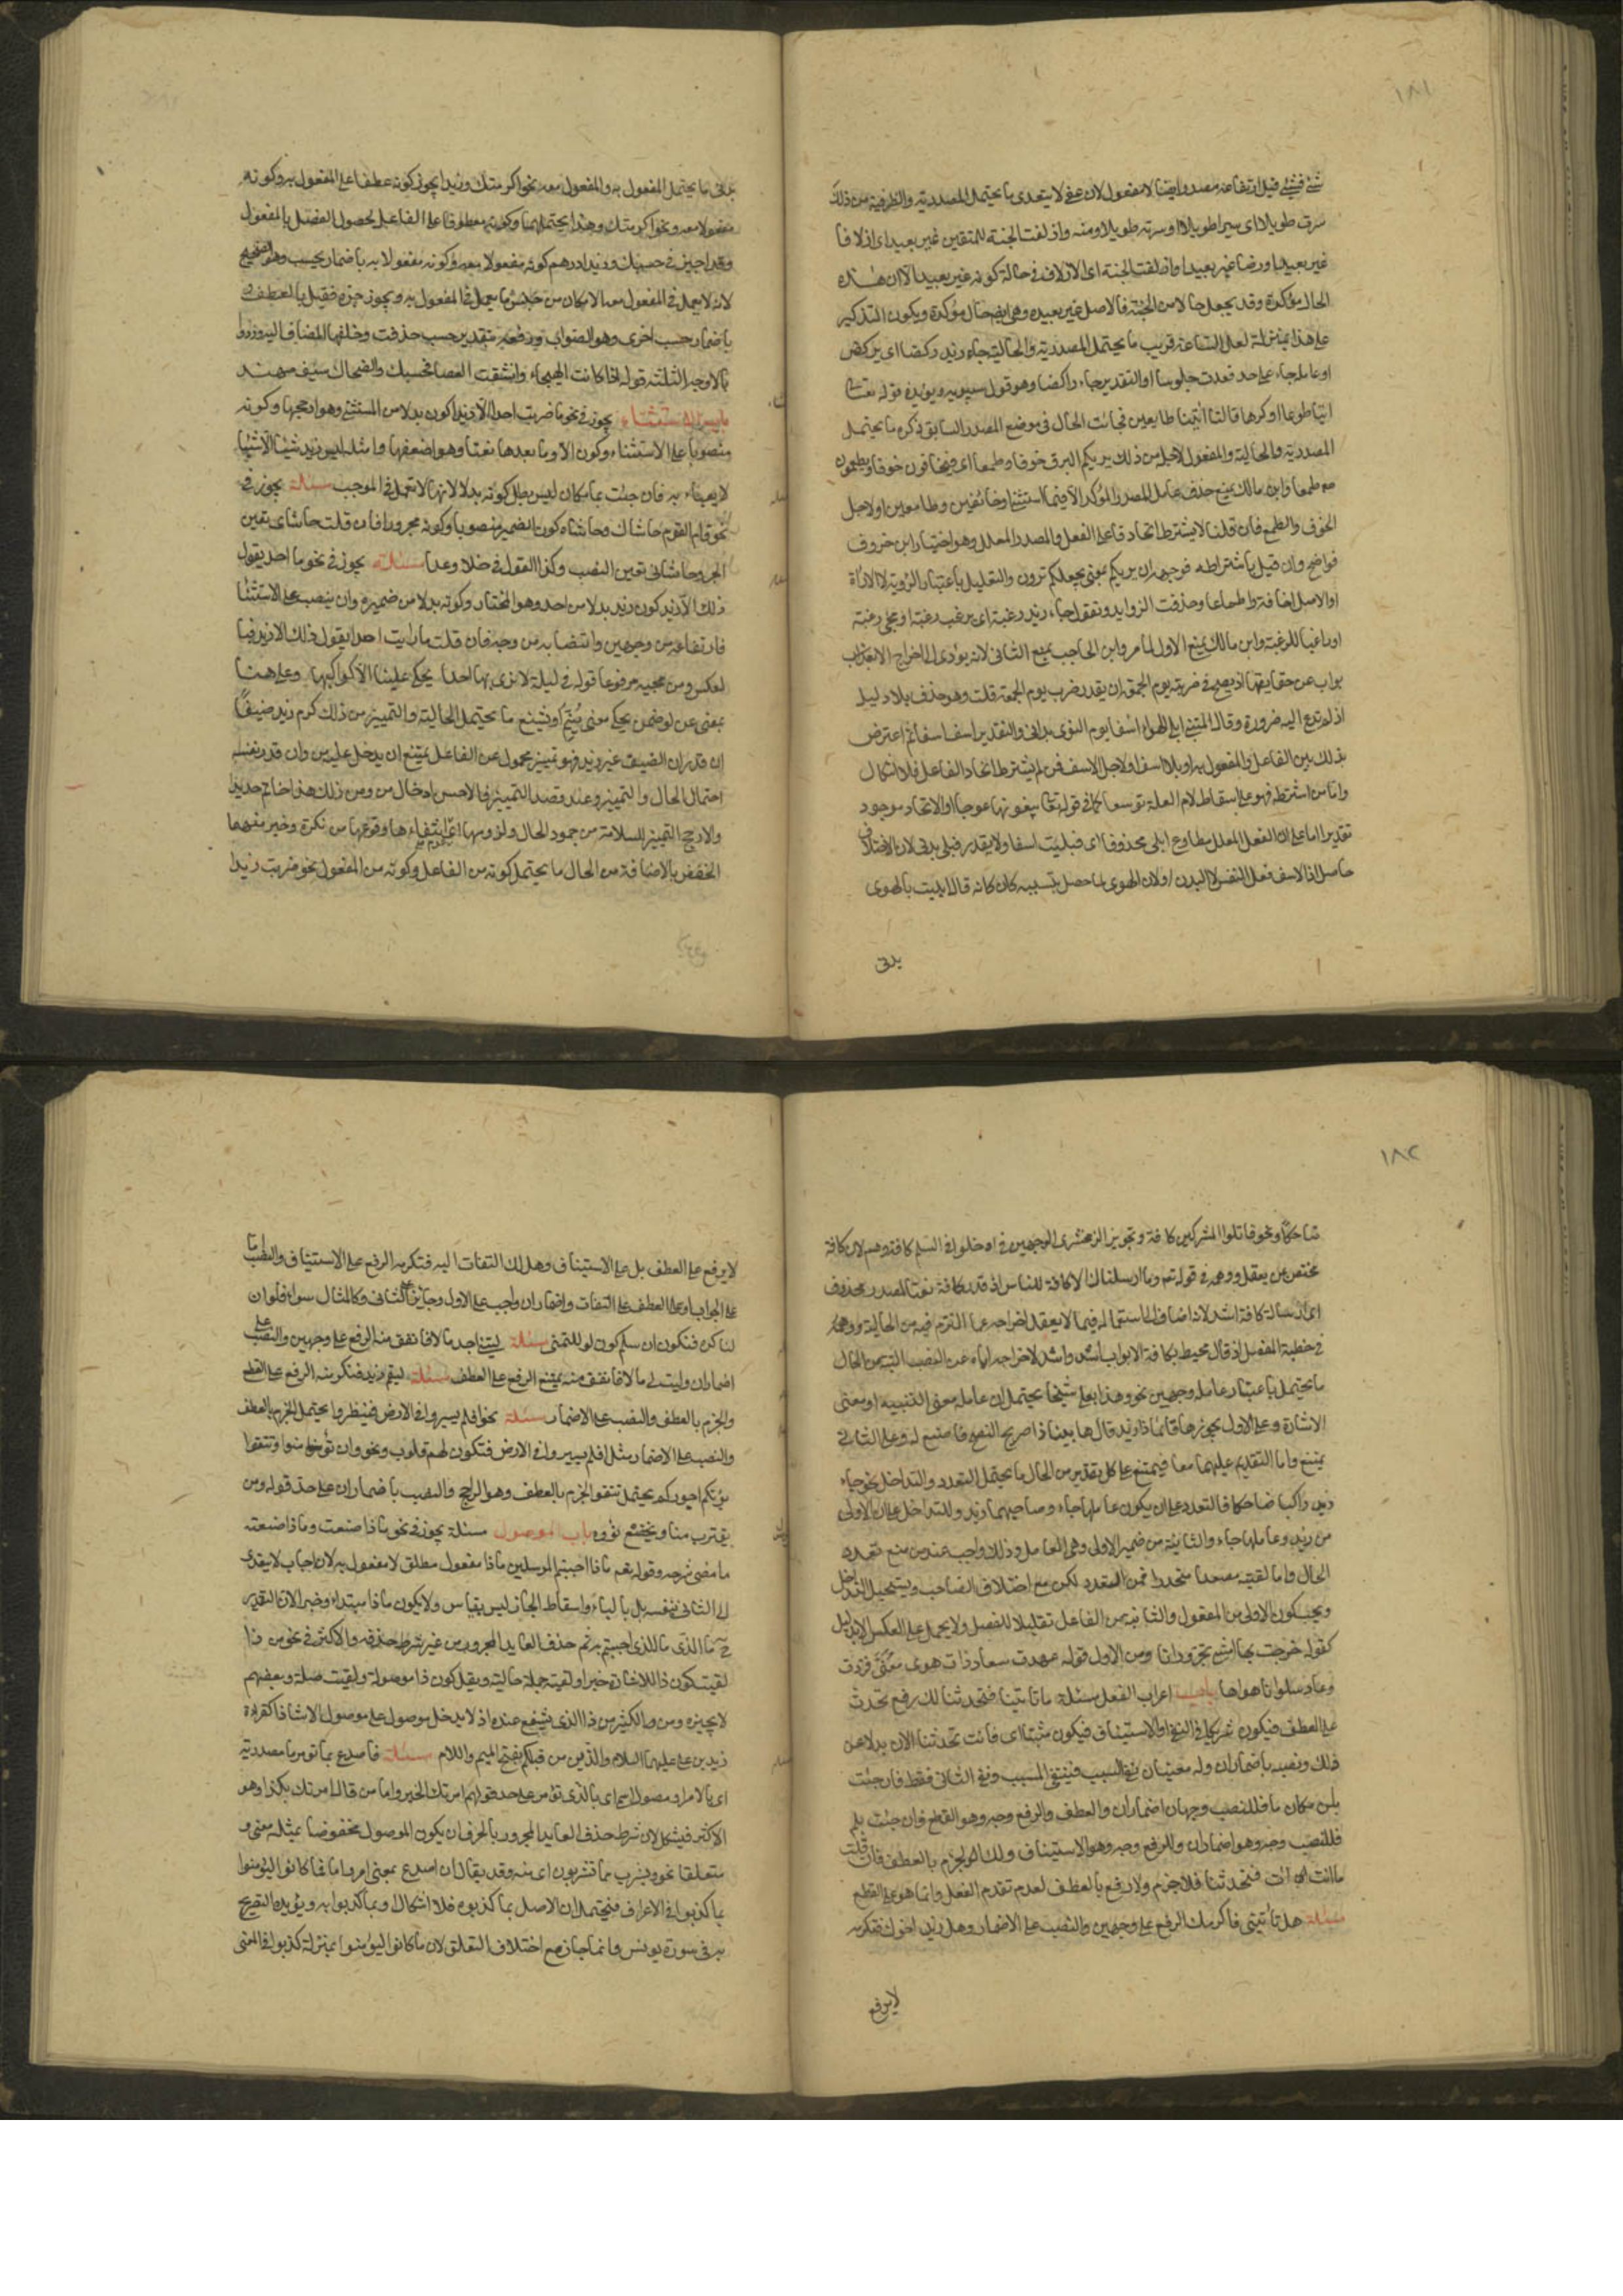 ١٨١
شئ فشئ قيل ارتفاعه مصدر وايضا لا مفعول لان عفى لا يتعدى ما يحتمل المصدرية والظرفية من ذلك
سرت طويلا اى سيرا طويلا او سرته طويلا ومنه وازلفت الجنة للمتقين غير بعيد اى ازلافا
غير بعيد او زمنا غير بعيد او ازلفت الجنة اى الازلاف فى حالة كونه غير بعيد الا ان هذه
الحال مؤكدة وقد يجعل حالا من الجنة فالاصل غير بعيدة وهى ايضا حال مؤكدة ويكون التذكير
على هذا بمنزلة لعل الساعة قريب ما يحتمل المصدرية والحالية جاء زيد ركضا اى يركض
او عامله جاء على حد قعدت جلوسا او التقدير جاء راكضا وهو قول سيبويه ويؤيده قوله تعالى
ائتيا طوعا او كرها قالتا اتينا طايعين فجائت الحال فى موضع المصدر السابق ذكره ما يحتمل
المصدرية والحالية والمفعول لاجله من ذلك يريكم البرق خوفا وطمعا اى فتخافون خوفا وتطمعون
طمعا وابن مالك يمنع حذف عامل المصدر المؤكد الا فيما استثنى او خائفين وطامعين او لاجل
الخوف والطمع فان قلنا لا يشترط اتحاد فاعل الفعل والمصدر المعلل وهو اختيار ابن خروف
فواضح وان قيل باشتراطه فوجهه ان يريكم بمعنى يجعلكم ترون والتعليل باعتبار الرؤية لا الاراة
او الاصل اخافة واطماعا وحذفت الزوايد وتقول جاء زيد رغبة اى يرغب رغبة او مجئ رغبة
او راغبا للرغبة وابن مالك يمنع الاول لما مر وابن الحاجب يمنع الثانى لانه يؤدى الى اخراج الابواب
عن حقايقها اذ يصح فى ضربته يوم الجمعة ان يقدر ضرب يوم الجمعة قلت وهو حذف بلا دليل
اذ لم تدع اليه ضرورة وقال المتنبى ابلى الهوى اسفا يوم النوى بدنى والتقدير اسف اسفا ثم اعترض
بذلك بين الفاعل والمفعول به او بلاء اسف او لاجل الاسف فمن لم يشترط اتحاد الفاعل فلا اشكال
واما من اشترطه فهو على اسقاط لام العلة توسعا كما فى قوله تعا يبغونها عوجا او الاتحاد موجود
تقديرا اما على ان الفعل المعلل مطاوع ابلى محذوفا اى فبليت اسفا ولا يقدر فبلى بدنى لان الاختلاف
حاصل اذ الاسف فعل النفس لا البدن او لان الهوى لما حصل بتسببه كان كانه قال ابليت بالهوى
بدنى
بدنى ما يحتمل المفعول به والمفعول معه نحو اكرمتك وزيدا يجوز كونه عطفا على المفعول به وكونه
مفعولا معه ونحو اكرمتك وهذا يحتملهما وكونه معطوفا على الفاعل لحصول الفصل بالمفعول
وقد اجيز فى حسبك وزيدا درهم كونه مفعولا معه وكونه مفعولا به باضمار يحسب وهو الصحيح
لانه لا يعمل فى المفعول معه الا ما كان من جنس ما يعمل فى المفعول به ويجوز جره فقيل بالعطف و
باضمار حسب اخرى وهو الصواب ورفعه بتقدير حسب حذفت وخلفها المضاف اليه ورووا
بالاوجه الثلثة قوله اذا كانت الهيجاء وانشقت العصا فحسبك والضحاك سيف مهند
باب الاستثناء يجوز فى نحو ما ضربت احدا الا زيدا كون بدلا من المستثنى وهو ارجحها وكونه
منصوبا على الاستثناء وكون الا وما بعدها نعتا وهو اضعفها ومثله ليس زيد شيئا الا شيئا
لا يعباء به فان جئت بما مكان ليس بطل كونه بدلا لانها لا تعمل فى الموجب مسئلة يجوز فى
نحو قام القوم حاشاك وحاشاه كون الضمير منصوبا وكونه مجرورا فان قلت حاشاى تعين
الجر وحاشانى تعين النصب وكذا القول فى خلا وعدا مسئلة يجوز فى نحو ما احد يقول
ذلك الا زيد كون زيد بدلا من احد وهو المختار وكونه بدلا من ضميره وان ينصب على الاستثناء
فارتفاعه من وجهين وانتصابه من وجه فان قلت ما رايت احدا يقول ذلك الا زيد فبا
لعكس ومن مجيئه مرفوعا قوله فى ليلة لا نرى بها احدا يحكى علينا الا كواكبها وعلى هنا
بمعنى عن او ضمن يحكى معنى ينم او يشنع ما يحتمل الحالية والتمييز من ذلك كرم زيد ضيفا
ان قدر ان الضيف غير زيد فهو تمييز محمول عن الفاعل يمتنع ان يدخل عليه من وان قدر نفسه
احتمل الحال والتمييز وعند قصد التمييز فالاحسن ادخال من ومن ذلك هذا خاتم حديدا
والارجح التمييز للسلامة من جمود الحال ولزومها اى عدم انتقالها ووقوعها من نكرة وخير منهما
الخفض بالاضافة من الحال ما يحتمل كونه من الفاعل وكونه من المفعول نحو ضربت زيدا
١٨٢
ضاحكا ونحو قاتلوا المشركين كافة وتجويز الزمخشرى الوجهين فى ادخلوا فى السلم كافة وهم لان كافة
مختص بمن يعقل ووهمه فى قوله تم وما ارسلناك الا كافة للناس اذ قدر كافة نعتا لمصدر محذوف
اى ارسالة كافة اشد لانه اضاف الى استعماله فيما لا يعقل اخراجه عما التزم فيه من الحالية ووهمه
فى خطبة المفصل اذ قال محيط بكافة الابواب اشد واشد لاخراجه اياه عن النصب البتة من الحال
ما يحتمل باعتبار عامله وجهين نحو وهذا بعلى شيخا يحتمل ان عامله معنى التنبيه او معنى
الاشارة وعلى الاول يجوز ها قائما ذا زيد قال ها بينا ذا صريح النصح فاصغ له وعلى الثانى
يمتنع واما التقديم عليهما معا فيمتنع على كل تقدير من الحال ما يحتمل التعدد والتداخل نحو جاء
زيد راكبا ضاحكا فالتعدد على ان يكون عاملهما جاء وصاحبهما زيد والتداخل على ان الاولى
من زيد وعاملها جاء والثانية من ضمير الاولى وهى العامل وذلك واجب عند من منع تعدد
الحال واما لقيته مصعدا منحدرا فمن التعدد لكن مع اختلاف الصاحب ويستحيل التداخل
ويجب كون الاولى من المفعول والثانية من الفاعل تقليلا للفصل ولا يحمل على العكس الا بدليل
كقوله خرجت بها امشى تجر وراءنا ومن الاول قوله عهدت سعاد ذات هوى معنى فزدت
وعاد سلوانا هواها باب اعراب الفعل مسئلة ما تاتينا فتحدثنا لك رفع تحدث
على العطف فيكون شريكا فى النفى او الاستيناف فيكون مثبتا اى فانت تحدثنا الان بدلا عن
ذلك ونصبه باضمار ان وله معنيان نفى السبب فينتفى المسبب ونفى الثانى فقط فان جئت
بلن مكان ما فللنصب وجهان اضمار ان والعطف وللرفع وجه وهو القطع وان جئت بلم
فللنصب وجه وهو اضمار ان وللرفع وجه وهو الاستيناف ولك الجزم بالعطف فان قلت
ما انت ات فتحدثنا فلا جزم ولا رفع بالعطف لعدم تقدم الفعل وانما هو على القطع
مسئلة هل تاتينى فاكرمك الرفع على وجهين والنصب على الاضمار وهل زيد اخوك فتكرمه
لا يرفع
لا يرفع على العطف بل على الاستيناف وهل لك التفات اليه فتكرمه الرفع على الاستيناف والنصب اما
على الجواب او على العطف على التفات واضمار ان واجب على الاول وجائز على الثانى وكالمثال سواء فلو ان
لنا كرة فنكون ان سلم كون لو للتمنى مسئلة ليتنى اجد مالا فانفق منه الرفع على وجهين والنصب على
اضمار ان وليت لى مالا فانفق منه يمتنع الرفع على العطف مسئلة ليقم زيد فنكرمه الرفع على القطع
والجزم بالعطف والنصب على الاضمار مسئلة نحو افلم يسيروا فى الارض فينظروا يحتمل الجزم بالعطف
والنصب على الاضمار مثل افلم يسيروا فى الارض فتكون لهم قلوب ونحو وان تؤمنوا وتتقوا
يؤتكم اجوركم يحتمل تتقوا الجزم بالعطف وهو الراجح والنصب باضمار ان على حد قوله ومن
يقترب منا ويخضع نؤوه باب الموصول مسئلة يجوز فى نحو ماذا صنعت وماذا صنعته
ما مضى شرحه وقوله تعم ماذا اجبتم المرسلين ماذا مفعول مطلق لا مفعول به لان اجاب لا يتعدى
الى الثانى بنفسه بل بالباء واسقاط الجار ليس بقياس ولا يكون ماذا مبتداء وخبرا لان التقدير
ح ما الذى ما للذى اجبتم به ثم حذف العايد المجرور من غير شرط حذفه والاكثر فى نحو من ذا
لقيت كون ذا للاشارة خبرا ولقيته جملة حالية ويقل كون ذا موصولة ولقيت صلة وبعضهم
لا يجيزه ومن والكثير من ذا الذى يشفع عنده اذ لا يدخل موصول على موصول الا شاذا كقراءة
زيد بن على عليهما السلام والذين من قبلكم بفتح الميم واللام مسئلة فاصدع بما تومر ما مصدرية
اى بالامر او موصول اسمى اى بالذى تؤمر على حد قولهم امرتك الخير واما من قال امرتك بكذا وهو
الاكثر فيشكل لان شرط حذف العايد المجرور بالحرف ان يكون الموصول مخفوضا بمثله معنى و
متعلقا نحو ويشرب مما تشربون اى منه وقد يقال ان اصدع بمعنى اومر واما فما كانوا ليؤمنوا
بما كذبوا فى الاعراف فيحتمل ان الاصل بما كذبوه فلا اشكال او بما كذبوا به ويؤيده التصريح
به فى سورة يونس وانما جاز مع اختلاف المتعلق لان ما كانوا ليؤمنوا بمنزلة كذبوا فى المعنى